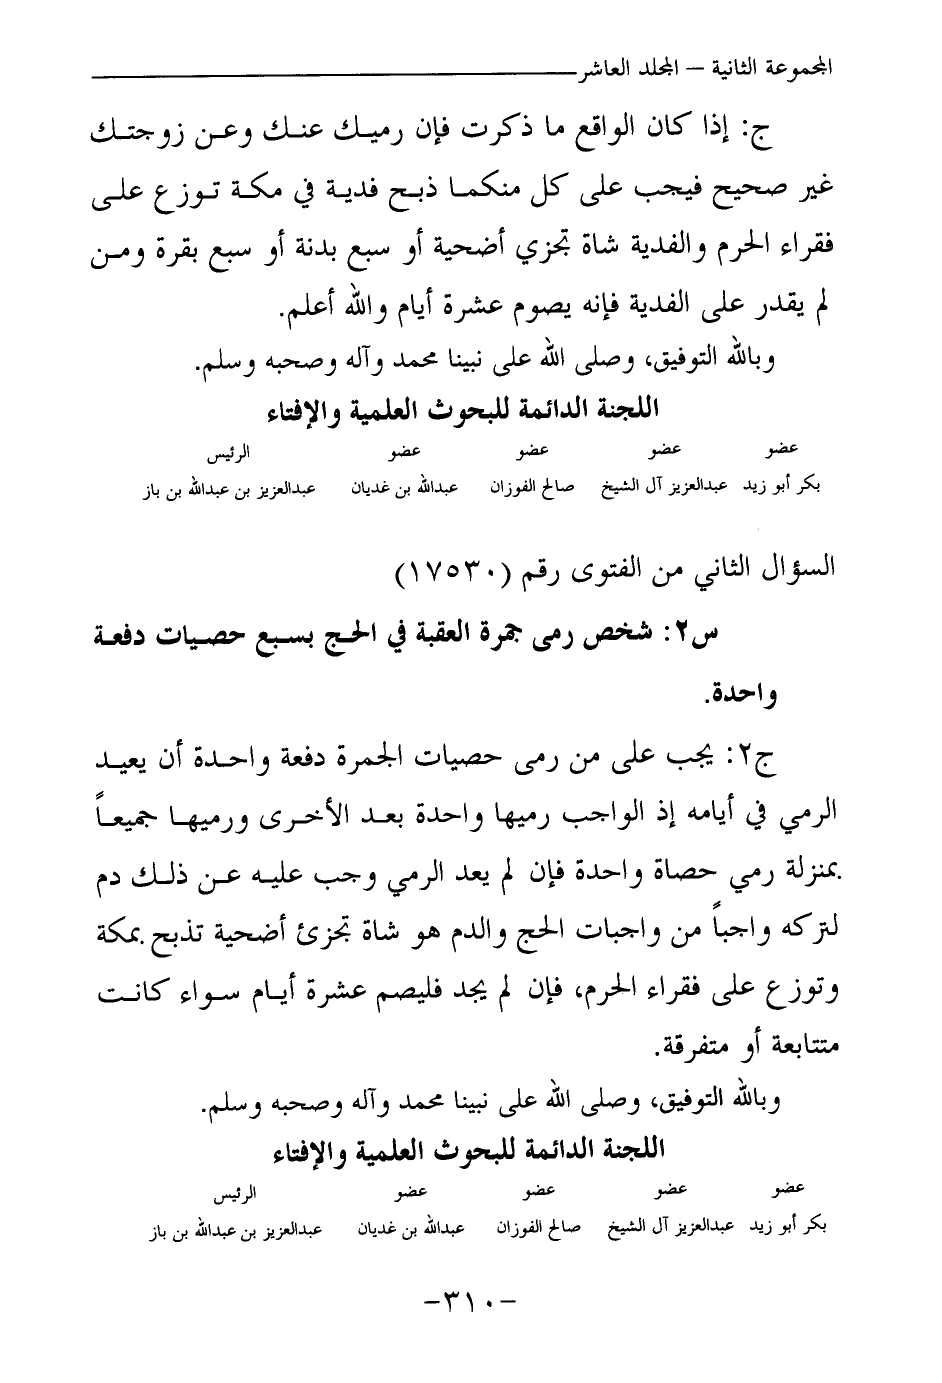 المجموعة الثانية – المجلد العاشر
ج: إذا كان الواقع ما ذكرت فإن رميك عنك وعن زوجتك
غير صحيح فيجب على كل منكما ذبح فدية في مكة توزع على
فقراء الحرم والفدية شاة تجزي أضحية أو سبع بدنة أو سبع بقرة ومن
لم يقدر على الفدية فإنه يصوم عشرة أيام والله أعلم.
وبالله التوفيق، وصلى الله على نبينا محمد وآله وصحبه وسلم.
اللجنة الدائمة للبحوث العلمية والإفتاء
عضو عضو عضو عضو الرئيس
بكر أبو زيد عبدالعزيز آل الشيخ صالح الفوزان عبدالله بن غديان عبدالعزيز بن عبدالله بن باز
السؤال الثاني من الفتوى رقم (١٧٥٣٠)
س٢: شخص رمى جمرة العقبة في الحج بسبع حصيات دفعة
واحدة.
ج٢: يجب على من رمى حصيات الجمرة دفعة واحدة أن يعيد
الرمي في أيامه إذ الواجب رميها واحدة بعد الأخرى ورميها جميعاً
بمنزلة رمي حصاة واحدة فإن لم يعد الرمي وجب عليه عن ذلك دم
لتركه واجباً من واجبات الحج والدم هو شاة تجزئ أضحية تذبح بمكة
وتوزع على فقراء الحرم، فإن لم يجد فليصم عشرة أيام سواء كانت
متتابعة أو متفرقة.
وبالله التوفيق، وصلى الله على نبينا محمد وآله وصحبه وسلم.
اللجنة الدائمة للبحوث العلمية والإفتاء
عضو عضو عضو عضو الرئيس
بكر أبو زيد عبدالعزيز آل الشيخ صالح الفوزان عبدالله بن غديان عبدالعزيز بن عبدالله بن باز
-٣١٠-